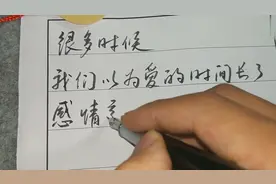 很多时候
我们以为爱的时间长了
感情